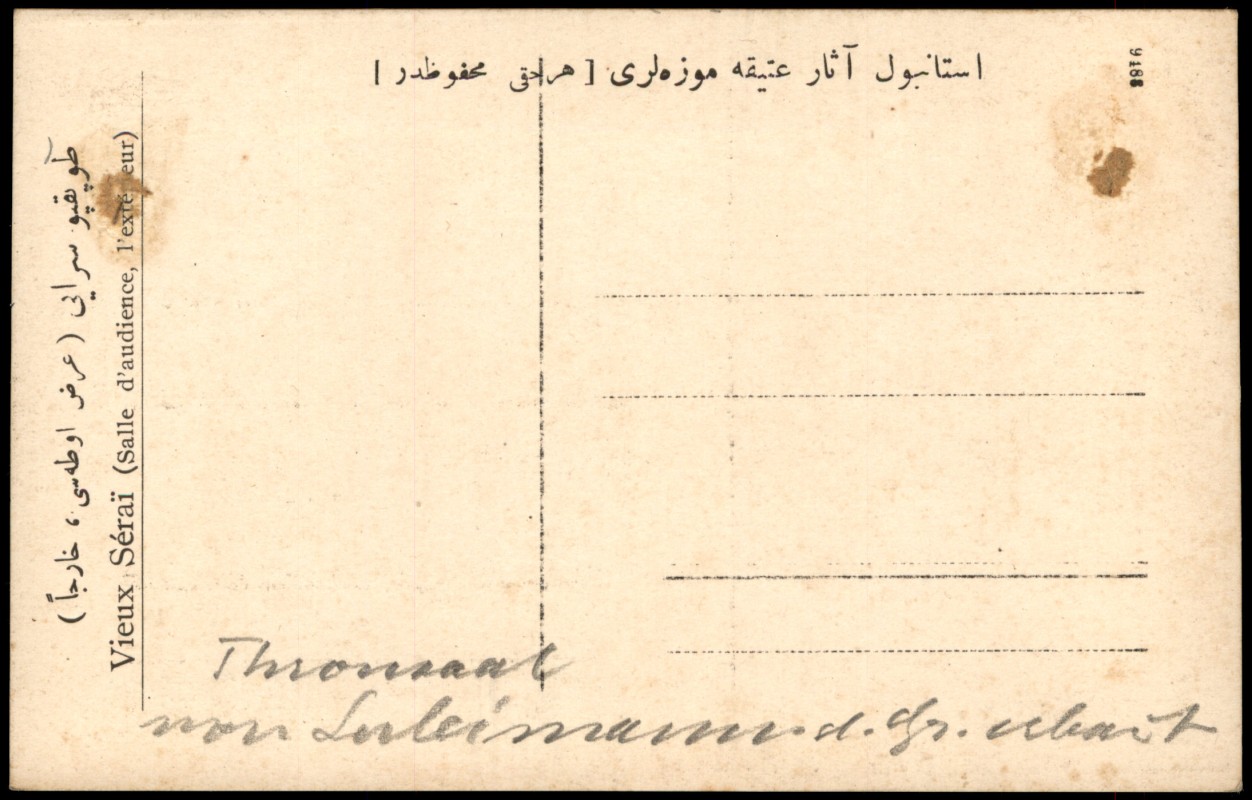 استانبول آثار عتیقه موزه‌لری [ هر حقی محفوظدر ]
طوپقپو سرایی ( عرض اوطه‌سی ، خارجاً )
Vieux Séraï (Salle d'audience, l'extérieur)
Thronsaal
von Suleimann d. Gr. erbaut